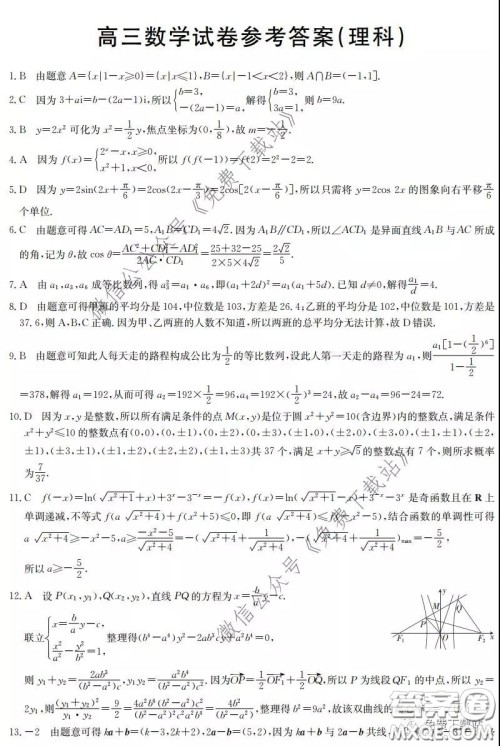 高三数学试卷参考答案(理科)
1. B 由题意 A={x|1-x≥0}={x|x≤1},B={x|-1<x<2},则 A∩B=(-1,1].
2. C 因为 3+ai=b-(2a-1)i,所以{b=3, -(2a-1)=a, 解得{b=3, 3a=1, 则 b=9a.
3. B y=2x² 可化为 x²=1/2 y,焦点坐标为(0,1/8),故 m=-1/2.
4. A 因为 f(x)={2^x-x,x≥0, x²+1,x<0, 所以 f(f(-1))=f(2)=2.
5. D 因为 y=2sin(2x+π/6)=2cos(2x-π/3)=2cos[2(x-π/6)],所以只需将 y=2cos 2x 的图象向右平移π/6
个单位.
6. C 由题意可得 AC=AD₁=5,A₁B=CD₁=4√2. 因为 A₁B∥CD₁,所以∠ACD₁ 是异面直线 A₁B 与 AC 所成
的角,记为 θ,故 cos θ=(AC²+CD₁²-AD₁²)/(2AC·CD₁)=(25+32-25)/(2×5×4√2)=2√2/5.
7. A 由 a₁,a₃,a₆ 成等比数列,得 a₃²=a₁·a₆,即(a₁+2d)²=a₁(a₁+5d). 已知 d≠0,解得 a₁/d=4.
8. D 由题意可得甲班的平均分是 104,中位数是 103,方差是 26.4;乙班的平均分是 102,中位数是 101,方差是
37.6,则 A、B、C 正确. 因为甲、乙两班的人数不知道,所以两班的总平均分无法计算,故 D 错误.
9. B 由题意可知此人每天走的路程构成公比为1/2的等比数列,设此人第一天走的路程为 a₁,则 a₁[1-(1/2)⁶]/(1-1/2)
=378,解得 a₁=192,从而可得 a₂=192×1/2=96,a₄=192×(1/2)³=24,故 a₂-a₄=96-24=72.
10. D 因为 x,y 是整数,所以所有满足条件的点 M(x,y)是位于圆 x²+y²=10(含边界)内的整数点,满足条件
x²+y²≤10 的整数点有(0,0),(0,±1),(0,±2),(0,±3),(±1,0),(±2,0),(±3,0),(±1,±1),(±2,±1),
(±3,±1),(±1,±2),(±1,±3),(±2,±2)共 37 个,满足 x+y≥√5 的整数点有 7 个,则所求概率
为7/37.
11. C f(-x)=ln(√(x²+1)+x)+3^(-x)-3^x=-f(x) 是奇函数且在 R 上
单调递减,不等式 f(a√(x²+4))+f(x²+5)≤0,即 f(a√(x²+4))≤f(-x²-5),结合函数的单调性可得
a√(x²+4)≥-x²-5,a≥(-x²-5)/√(x²+4)=-(√(x²+4)+1/√(x²+4)),-(√(x²+4)+1/√(x²+4))max=-5/2,
所以 a≥-5/2.
12. A 设 P(x₁,y₁),Q(x₂,y₂),直线 PQ 的方程为 x=b/a y-c,
联立{x=b/a y-c, x²/a²-y²/b²=1, 整理得(b⁴-a⁴)y²-2ab³cy+a²b⁴=0,
则 y₁+y₂=2ab³c/(b⁴-a⁴),y₁y₂=a²b⁴/(b⁴-a⁴). 因为OP=1/2 OF₁+1/2 OQ,所以 P 为线段 QF₁ 的中点,所以 y₂=
2y₁,则(y₁+y₂)²/(y₁·y₂)=9/2
13. -2
微信公众号《免费下载站》
微信公众号《免费下载站》